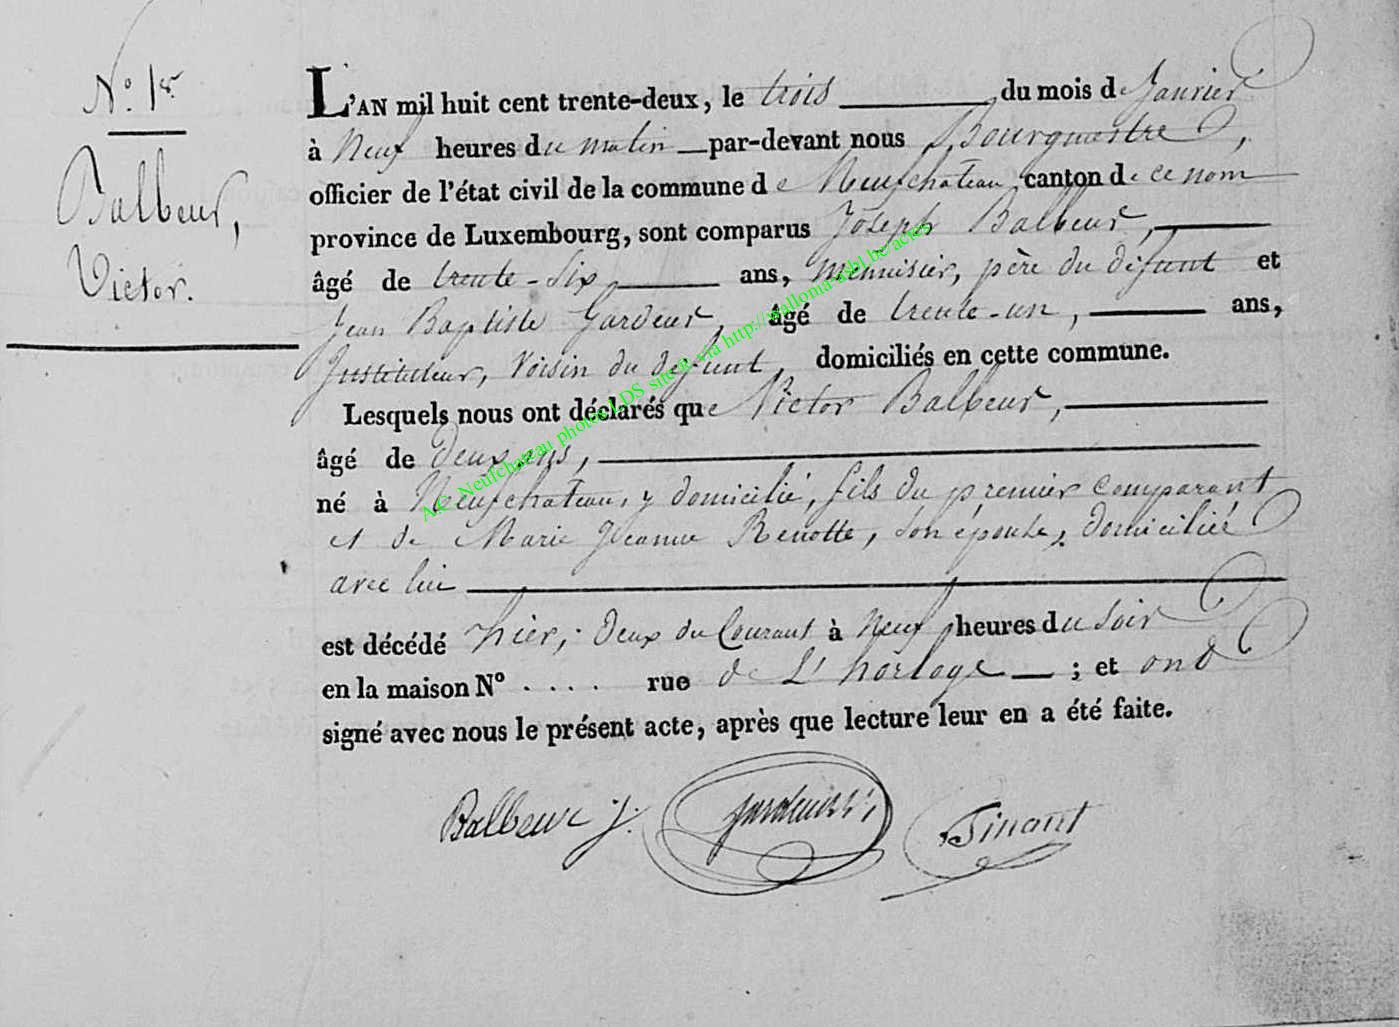 N.º 1er
Balbeur,
Victor.
L'AN mil huit cent trente-deux, le trois du mois de Janvier
à Neuf heures du matin par-devant nous Bourgmestre,
officier de l'état civil de la commune de Neufchateau, canton de ce nom
province de Luxembourg, sont comparus Joseph Balbeur,
âgé de trente-six ans, Menuisier, père du défunt et
Jean Baptiste Gardeur, âgé de trente-un, ans,
Instituteur, Voisin du défunt, domiciliés en cette commune.
Lesquels nous ont déclarés que Victor Balbeur,
âgé de deux ans,
né à Neufchateau, y domicilié, fils du premier comparant
et de Marie Jeanne Renotte, son épouse, domiciliée
avec lui
est décédé hier, deux du Courant à Neuf heures du soir
en la maison Nº . . . . rue de L'horloge ; et ont
signé avec nous le présent acte, après que lecture leur en a été faite.
Balbeur J.
A.C. Neufchateau photos LDS site via http://wallonia-asbl.be/actes